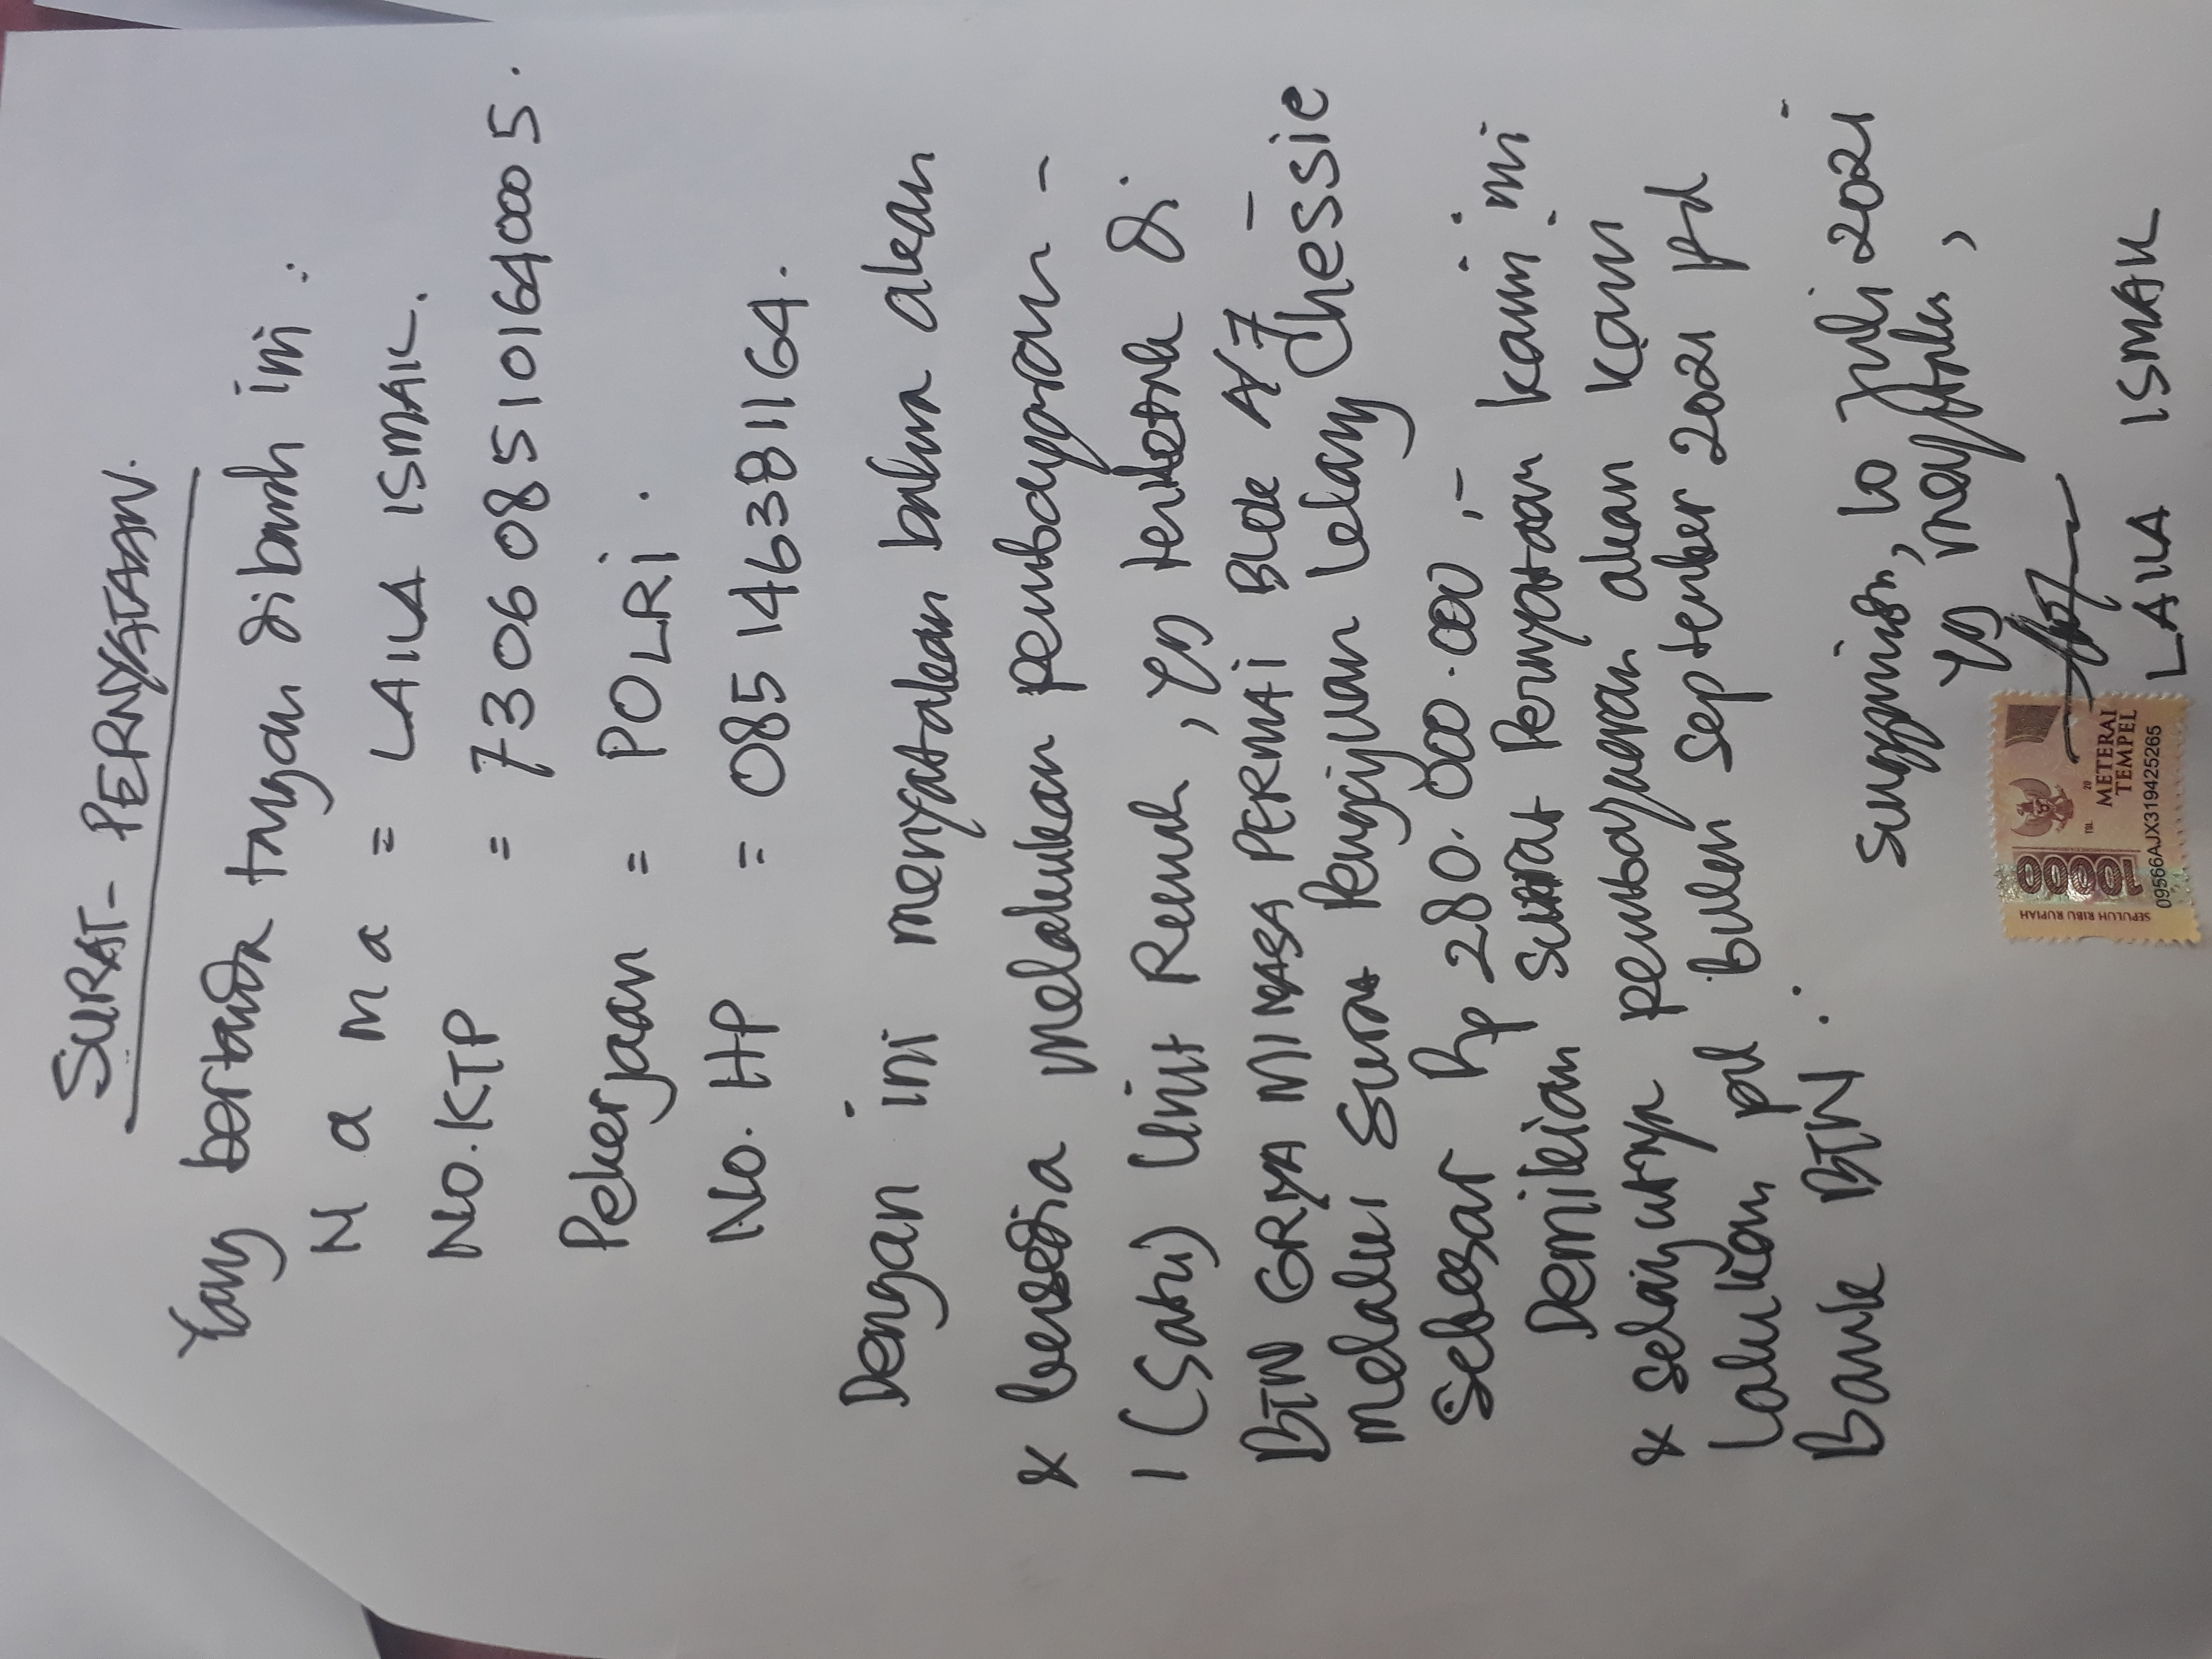 SURAT - PERNYATAAN.
Yang bertanda tangan dibawah ini :
N a m a = LAILA ISMAIL.
No. KTP = 7306085101640005.
Pekerjaan = POLRI.
No. HP = 085146381164.
Dengan ini menyatakan bahwa akan
x bersedia melakukan pembayaran -
1 (Satu) Unit Rumah, yg terletak di
BTN GRIYA MINASA PERMAI Blok A/7 -
melalui Surat Pengajuan Lelang Chessie
Sebesar Rp 280.000.000,-
Demikian Surat Pernyataan kami ini
x Selanjutnya pembayaran akan kami
lakukan pd bulan September 2021 pd
Bank BTN.
Sungguminasa, 10 Juli 2021
Yg menyatakan,
SEPULUH RIBU RUPIAH
10000
TGL. 20
METERAI
TEMPEL
09566AJX319425265
LAILA ISMAIL